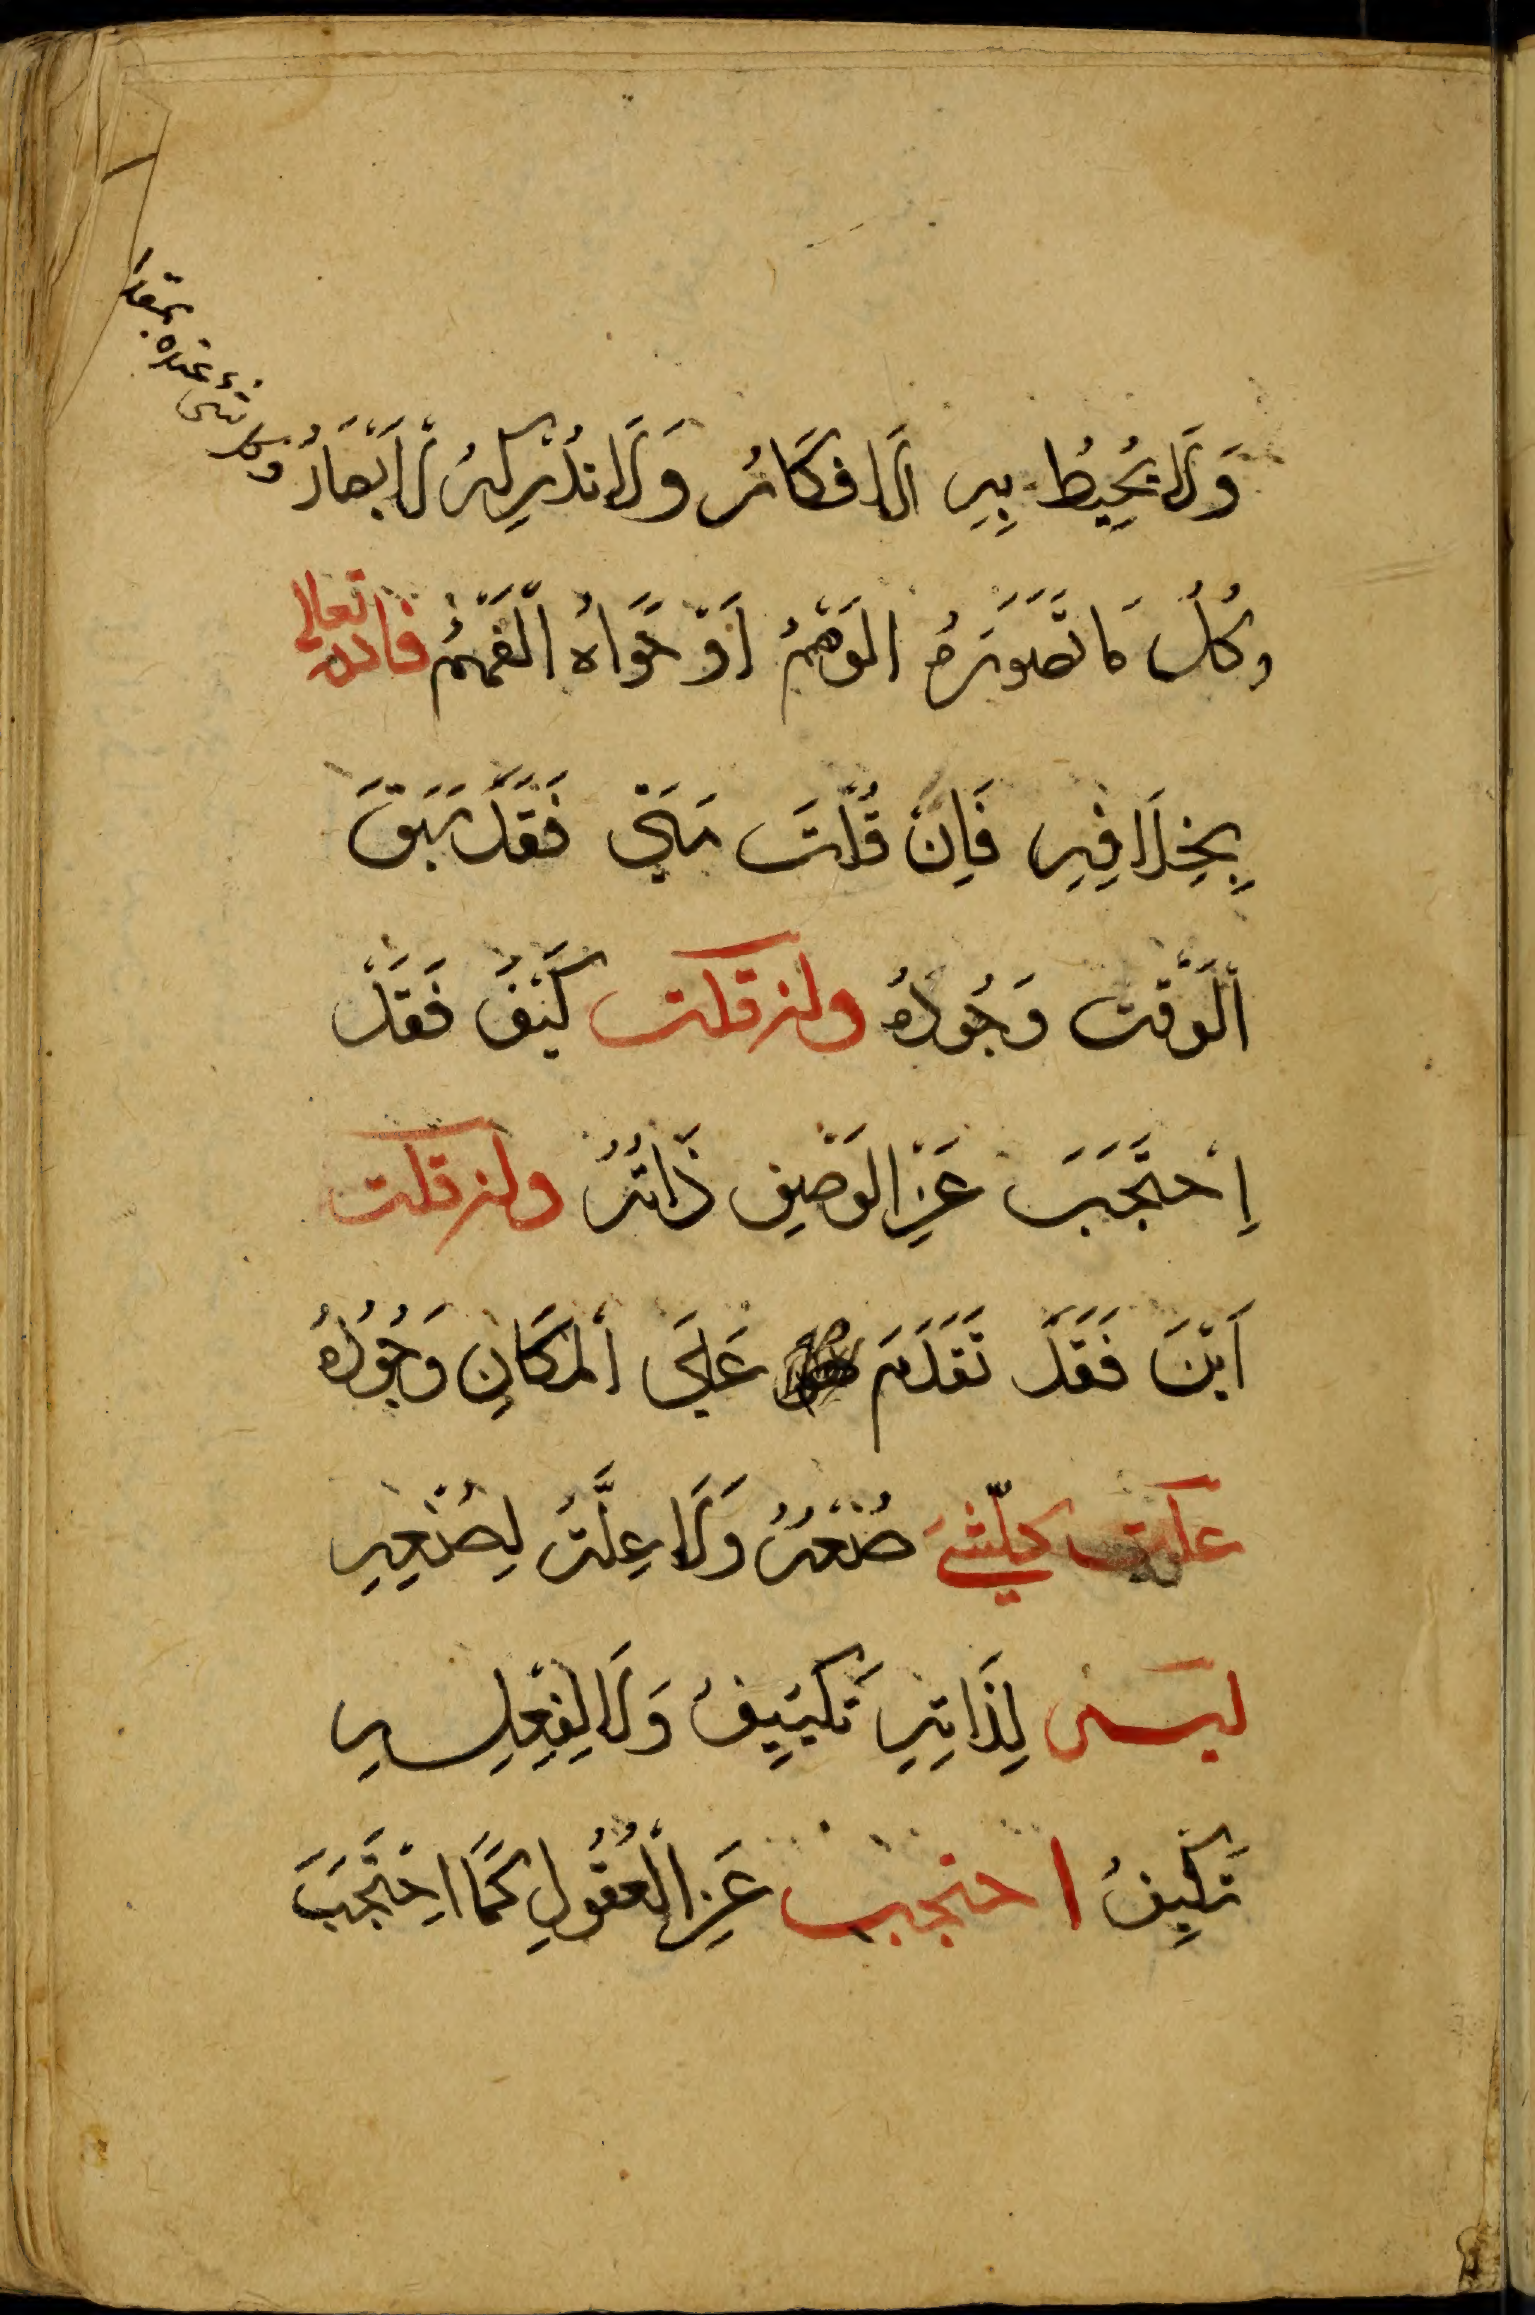 وَلَا يُحِيطُ بِهِ الَافكَارُ وَلَا تُدْرِكهُ لْاَبْصَارُ
وكل شئ عنده بمقدا
وكُلُ مَا تَصَوَّرَهُ الوَهْمُ اَوْ حَوَاهُ الْفَهْمُ فالله تعالى
بِخِلَافِهِ فَاِنْ قُلْتَ مَتىٰ فَقَدْ سَبَقَ
الْوَقْتَ وَجُودُهُ وان قلت كَيْفَ فَقَدْ
اِحْتَجَبَ عَنِ الوَصْفِ ذَاتُهُ وان قلت
اَيْنَ فَقَدْ تَقَدَّمَ عَلَى المَكَانِ وَجُودُهُ
علت كلّ شئ صُنْعُهُ وَلَا عِلَّتَ لِصُنْعِهِ
ليس لِذَاتِهِ تَكيِيفُ وَلَا لِفِعْلِهِ
تَكْلِيفُ احتجب عَنِ الْعُقُولِ كَمَا احْتَجَبَ